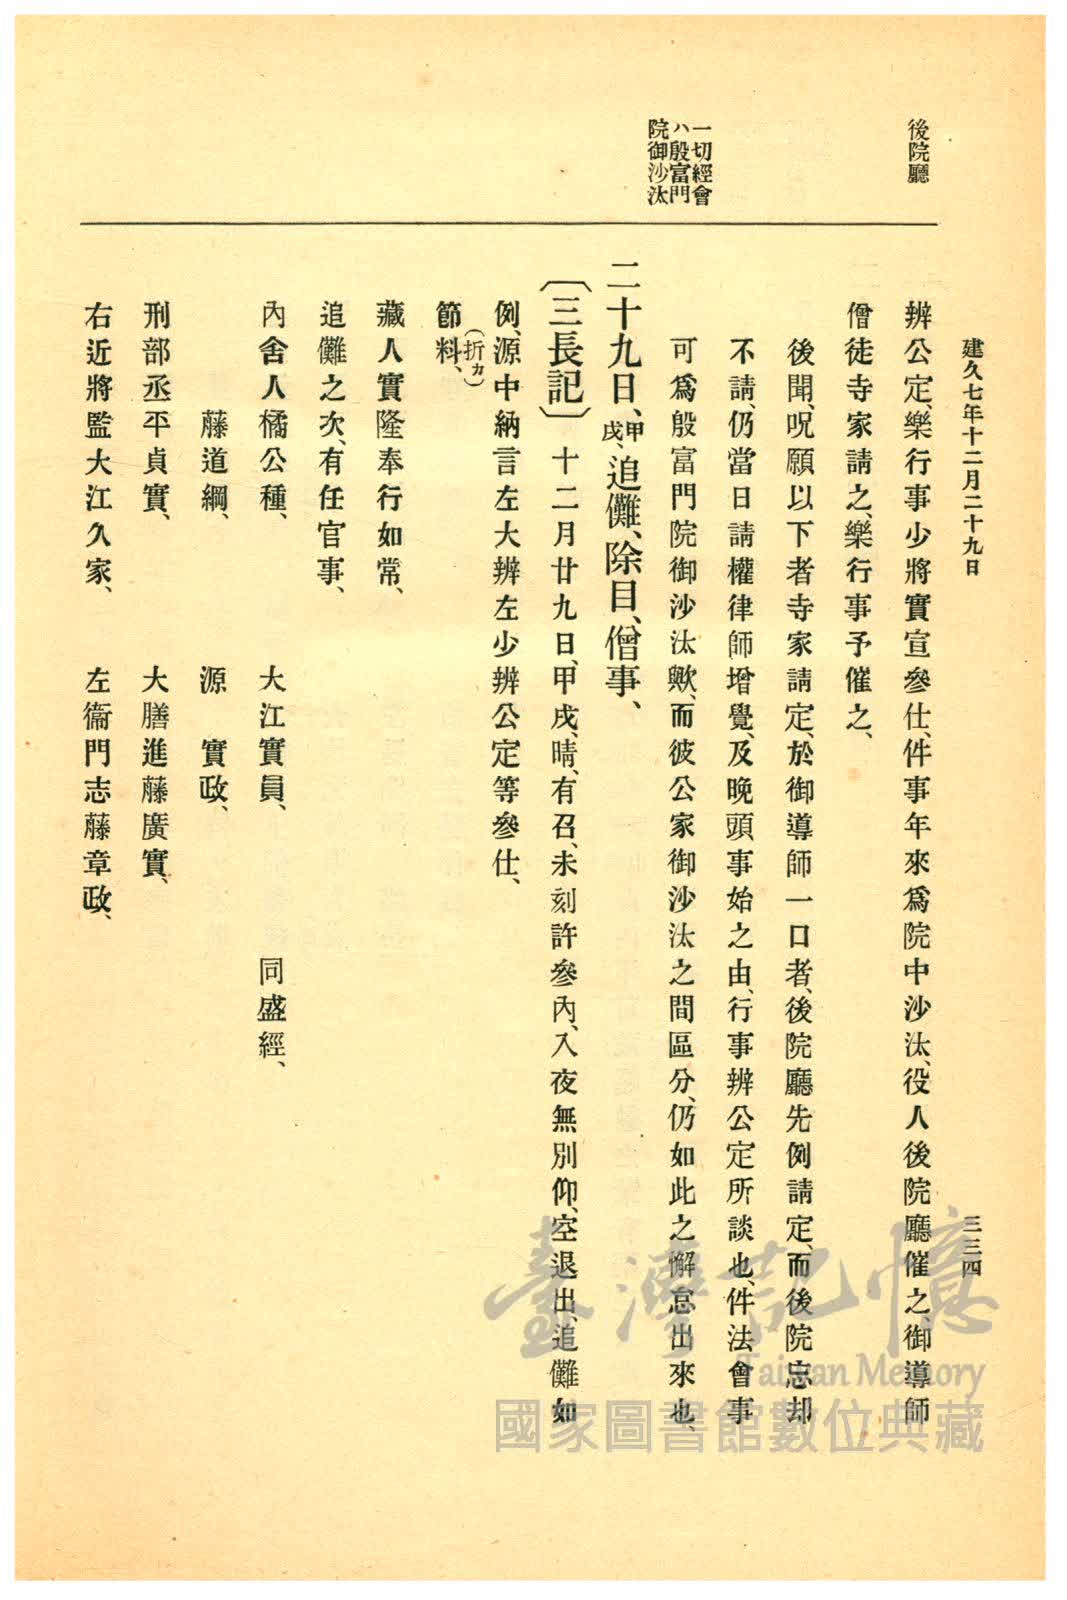 建久七年十二月二十九日
三三四
後院廳
一切經會
ハ殷富門
院御沙汰
辨公定、樂行事少將實宣參仕、件事年來爲院中沙汰、役人後院廳催之、御導師
僧徒寺家請之、樂行事予催之、
後聞、呪願以下者寺家請定、於御導師一口者、後院廳先例請定、而後院忘却
不請、仍當日請權律師增覺、及晚頭事始之由、行事辨公定所談也、件法會事
可爲殷富門院御沙汰歟、而彼公家御沙汰之間區分、仍如此之懈怠出來也、
二十九日、甲戌、追儺、除目、僧事、
〔三長記〕十二月廿九日、甲戌、晴、有召、未刻許參內、入夜無別仰、空退出、追儺如
例、源中納言左大辨左少辨公定等參仕、
節料、(折カ)
藏人實隆奉行如常、
追儺之次、有任官事、
內舍人橘公種、 大江實員、 同盛經、
藤道綱、 源實政、
刑部丞平貞實、 大膳進藤廣實、
右近將監大江久家、 左衞門志藤章政、
臺灣記憶
Taiwan Memory
國家圖書館數位典藏